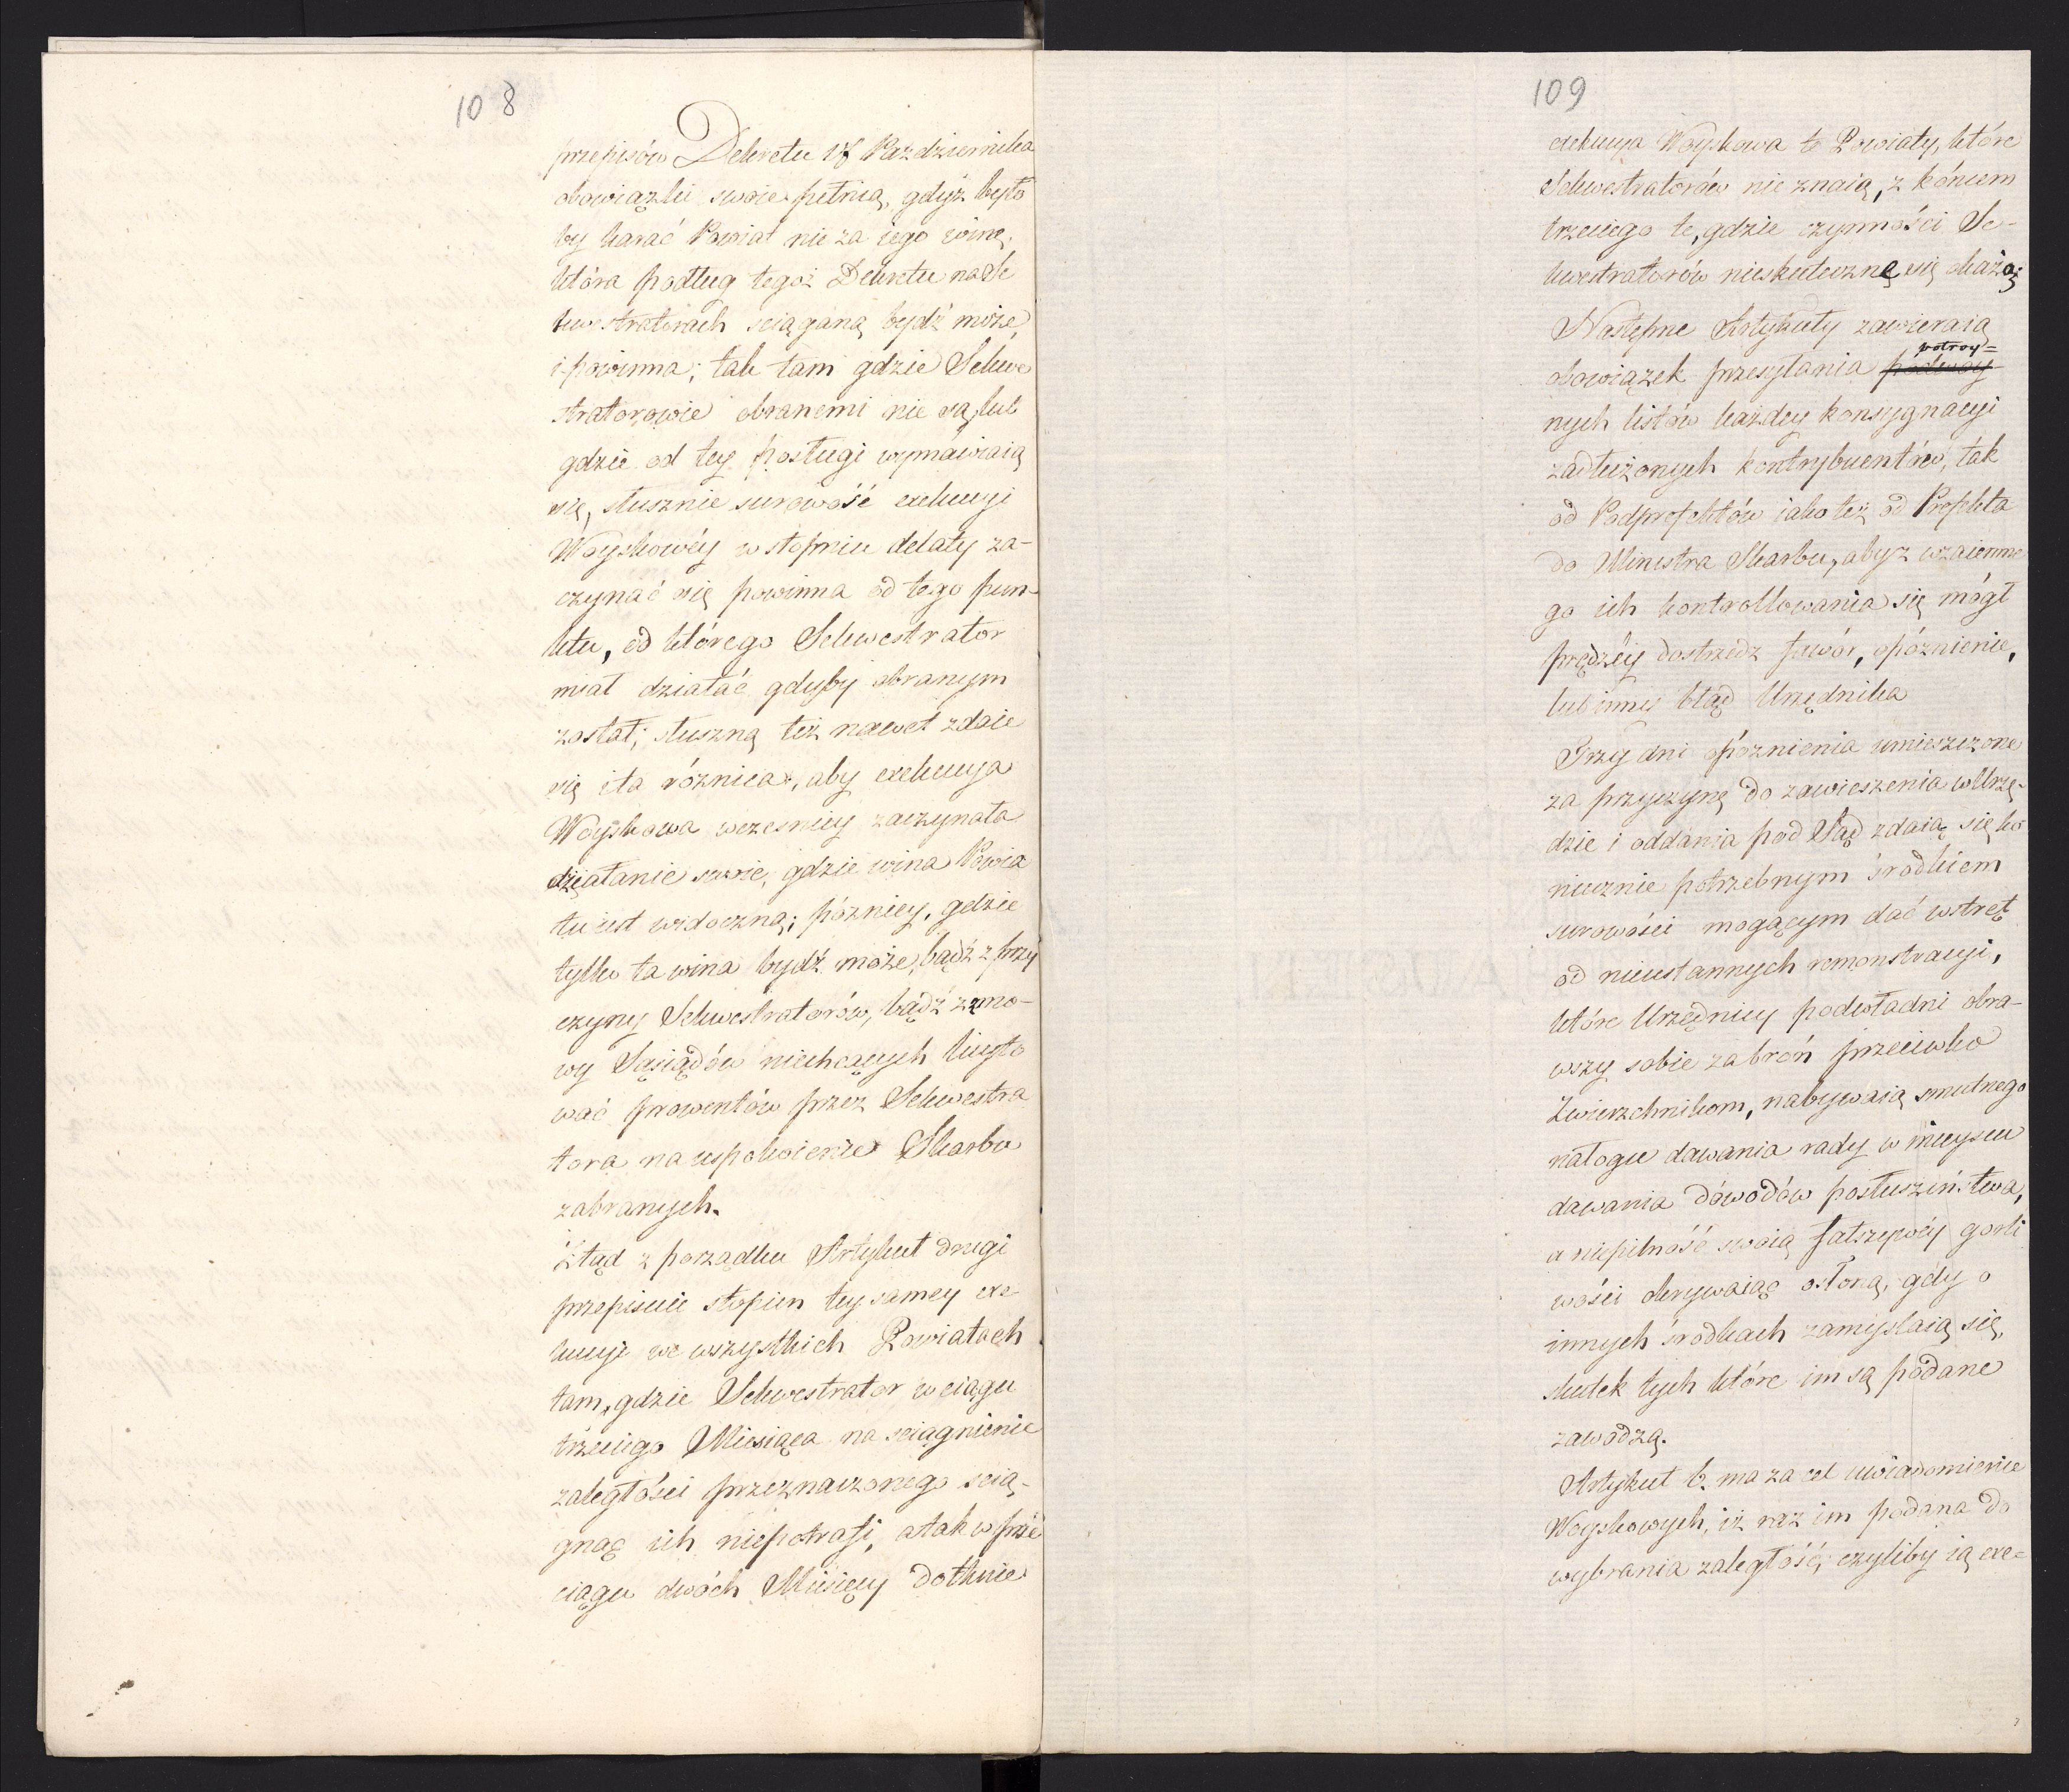 108
przepisów Dekretu 18 Pazdziernika
obowiązki swoie pełnią, gdyż było
by karać Powiat nie za iego winę,
która podług tegoż Dekretu na Se
kwestratorach sciąganą bydź może,
i powinna; tak tam gdzie Sekwe
stratorowie obranemi nie są, lub
gdzie od tey posługi wymawiaią
się, słusznie surowość exekucyi
Woyskowéy w stopniu delaty za-
czynać się powinna od tego pun-
ktu, od którego Sekwestrator
miał działać gdyby obranym
został; słuszną też nawet zdaie
się i ta różnica, aby exekucya
Woyskowa wczesniey zaczynała
działanie swoie, gdzie wina Powia
tu iest widoczną; pózniey, gdzie
tylko ta wina bydź może, bądź z przy
czyny Sekwestratorów, bądź z zmo-
wy Sąsiadów niechcących licyto
wać prowentów przez Sekwestra
tora na uspokoienie Skarbu
zabranych.
Ztąd z porządku Artykuł drugi
przepisuie stopien tey samey exe
kucyi we wszystkich Powiatach
tam, gdzie Sekwestrator w ciągu
trzeciego Miesiąca na sciągnienie
zaległości przeznaczonego scią-
gnąć ich niepotrafi, a tak w prze
ciągu dwóch Miesięcy dotknie
109
exekucya Woyskowa te Powiaty, które
Sekwestratorów nie znaią, z końcem
trzeciego te, gdzie czynności Se-
kwestratorów nieskuteczne się okażą;
Następne Artykuły zawieraią
potroy=
obowiązek przesyłania podwoy
nych listów każdey konsygnacyi
zadłużonych kontrybuentów, tak
od Podprefektów iako też od Prefekta
do Ministra Skarbu, aby z wzaiemne
go ich kontrollowania się mógł
prędzéy dostrzedz fawór, opóźnienie,
lub inny błąd Urzędnika
Trzy dni opoznienia umieszczone
za przyczynę do zawieszenia w Urzę-
dzie i oddania pod Sąd zdaią się ko
niecznie potrzebnym środkiem
surowości mogącym dać wstręt
od nieustannych remonstracyi,
które Urzędnicy podwładni obra-
wszy sobie za broń przeciwko
Zwierzchnikom, nabywaią smutnego
nałogu dawania rady w mieyscu
dawania dowodów posłuszeństwa,
a niepilność swoią fałszywéy gorli
wości okrywaiąc osłoną, gdy o
innych środkach zamyslaią się,
skutek tych które im są podane
zawodzą.
Artykuł 6. ma za cel uwiadomienie
Woyskowych, iż raz im podana do
wybrania zaległość, czyliby ią exe=